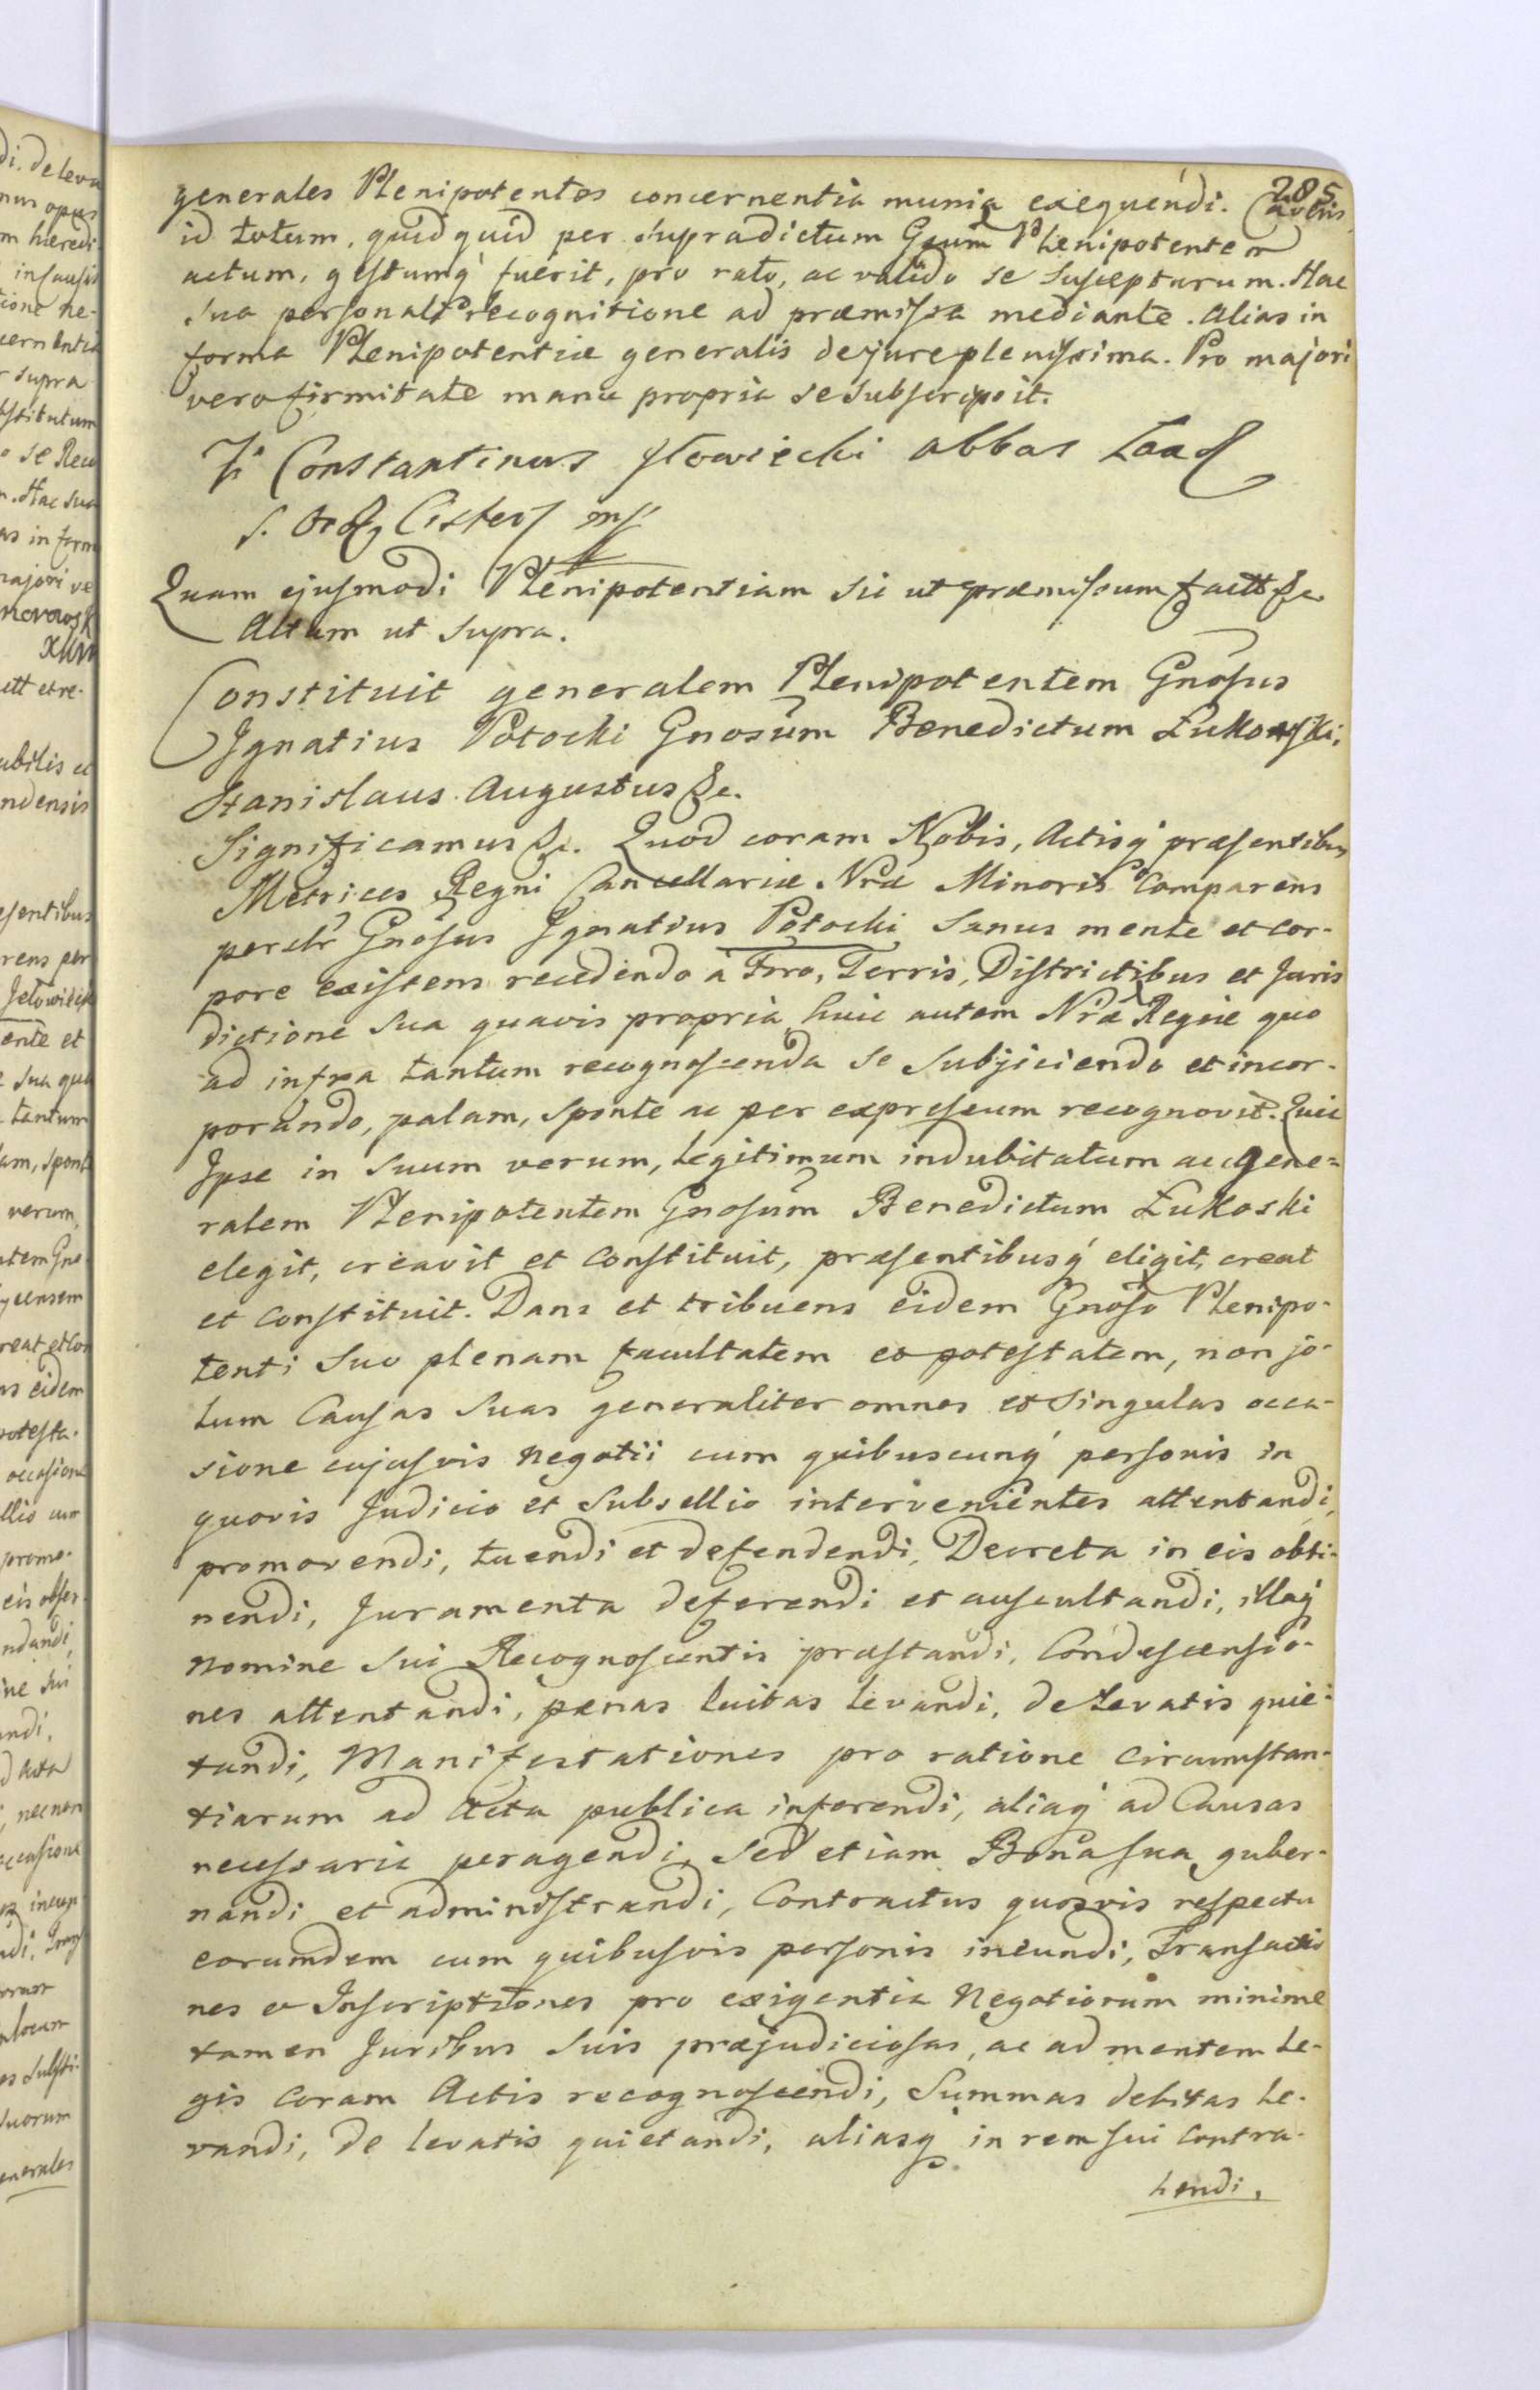 285
generales Plenipotentes concernentia munia exequendi. Cavens
id totum, quidquid per supradictum Gsum Plenipotentem
actum, gestumq' fuerit, pro rato, ac valido se suscepturum. Hac
sua personali recognitione ad præmissa mediante. Alias in
forma Plenipotentiæ generalis de jure plenissima. Pro majori
vero firmitate manu propria se subscripsit.
Constantinus Jłowiecki abbas Laad
S. Ord. Cisters mp
Quam ejusmodi Plenipotentiam sic ut præmissum factt &c
Actum ut supra.
Constituit generalem Plenipotentem Gnosus
Ignatius Potocki Gnosum Benedictum Łukowski,
Stanislaus Augustus &c.
Significamus &c. Quod coram Nobis, Actisq' præsentibus
Metrices Regni Cancellariæ Nræ Minoris Comparens
perslr Gnosus Ignatius Potocki sanus mente et cor-
pore existens recedendo à Foro, Terris, Districtibus et Juris
dictione sua quavis propria, huic autem Nræ Regiæ quo
ad infra tantum recognoscenda se subjiciendo et incor-
porando, palam, sponte ac per expressum recognovit. Quia
Ipse in suum verum, legitimum indubitatum ac gene=
ralem Plenipotentem Gnosum Benedictum Łukoski
elegit, creavit et constituit, præsentibusq' eligit, creat
et constituit. Dans et tribuens eidem Gnoso Plenipo-
tenti suo plenam facultatem et potestatem, non so-
lum Causas suas generaliter omnes et singulas occa-
sione cujusvis negotii cum quibuscunq' personis in
quovis Judicio et Subsellio intervenientes attentandi,
promovendi, tuendi et defendendi, Decreta in eis obti-
nendi, Juramenta deferendi et auscultandi, illaq'
nomine sui Recognoscentis præstandi, Condescensio-
nes attentandi, pænas luitas levandi, de levatis quie-
tandi, Manifestationes pro ratione circumstan-
tiarum ad Acta publica inferendi, aliaq' ad Causas
necessaria peragendi, sed etiam Bona sua guber-
nandi et administrandi, Contractus quosvis respectu
eorumdem cum quibusvis personis ineundi, Transactio
nes et Inscriptiones pro exigentia Negotiorum minime
tamen Juribus suis præjudiciosas, ac ad mentem Le-
gis coram Actis recognoscendi, Summas debitas le-
vandi, de levatis quietandi, aliasq' in rem sui contra-
hendi,